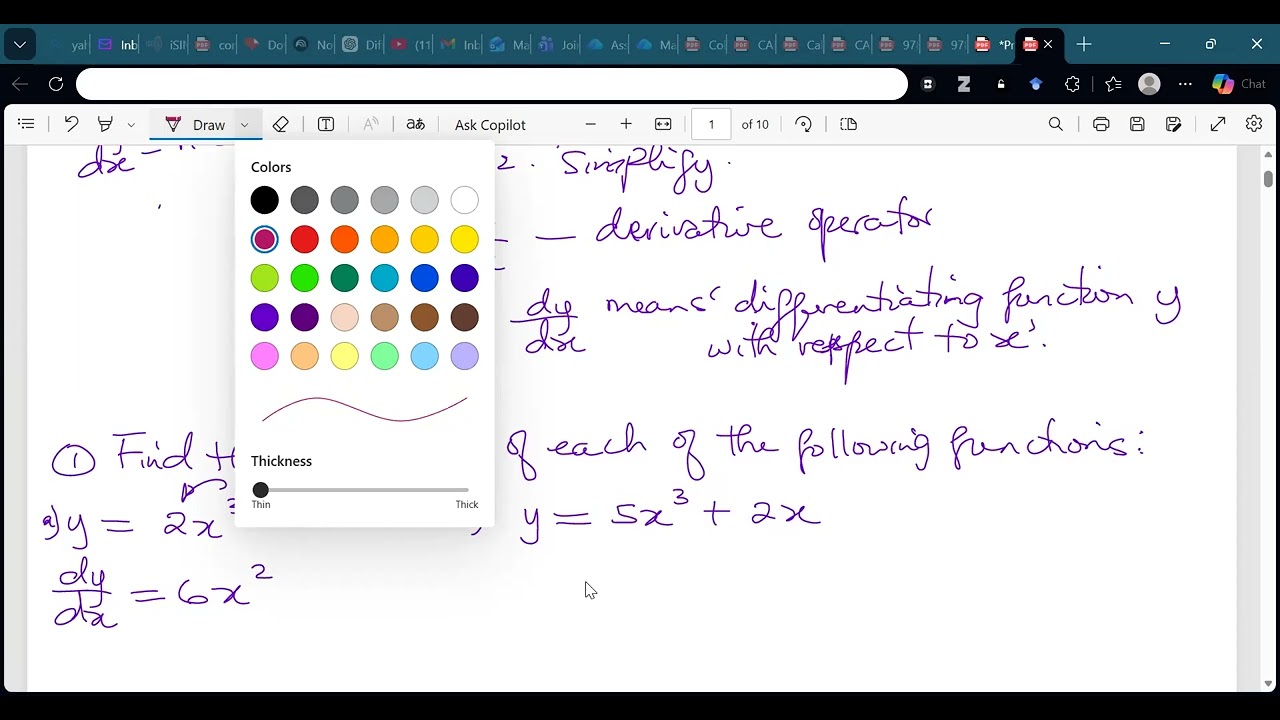 yal Inb iSII cor Do No Dif (11 Inb Ma Joi Ass Ma Co CA Ca CA 97 97 *Pr
Chat
Draw aあ Ask Copilot 1 of 10
dy/dx =
2. Simplify.
— derivative operator
dy/dx means 'differentiating function y
with respect to x'.
Colors
Thickness
Thin Thick
① Find of each of the following functions:
a) y = 2x³ , y = 5x³ + 2x
dy/dx = 6x²